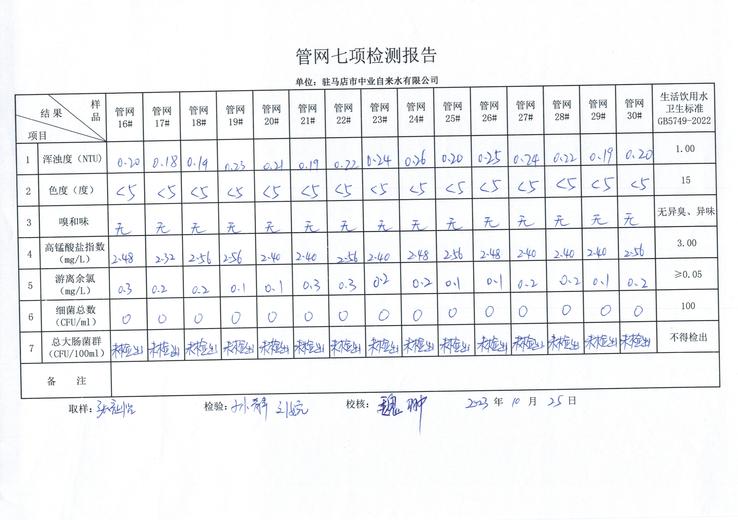 管网七项检测报告
单位：驻马店市中业自来水有限公司
结果 样品 项目 管网16# 管网17# 管网18# 管网19# 管网20# 管网21# 管网22# 管网23# 管网24# 管网25# 管网26# 管网27# 管网28# 管网29# 管网30# 生活饮用水卫生标准GB5749-2022
1 浑浊度（NTU） 0.20 0.18 0.19 0.23 0.21 0.19 0.22 0.24 0.26 0.20 0.25 0.24 0.22 0.19 0.20 1.00
2 色度（度） <5 <5 <5 <5 <5 <5 <5 <5 <5 <5 <5 <5 <5 <5 <5 15
3 嗅和味 无 无 无 无 无 无 无 无 无 无 无 无 无 无 无 无异臭、异味
4 高锰酸盐指数（mg/L） 2.48 2.32 2.56 2.56 2.40 2.40 2.56 2.40 2.48 2.56 2.48 2.40 2.40 2.40 2.56 3.00
5 游离余氯（mg/L） 0.3 0.2 0.2 0.1 0.1 0.3 0.3 0.2 0.2 0.1 0.1 0.2 0.2 0.1 0.2 ≥0.05
6 细菌总数（CFU/ml） 0 0 0 0 0 0 0 0 0 0 0 0 0 0 0 100
7 总大肠菌群（CFU/100ml） 未检出 未检出 未检出 未检出 未检出 未检出 未检出 未检出 未检出 未检出 未检出 未检出 未检出 未检出 未检出 不得检出
备 注
取样： 检验：孙静 校核：魏翀 2023 年 10 月 25 日